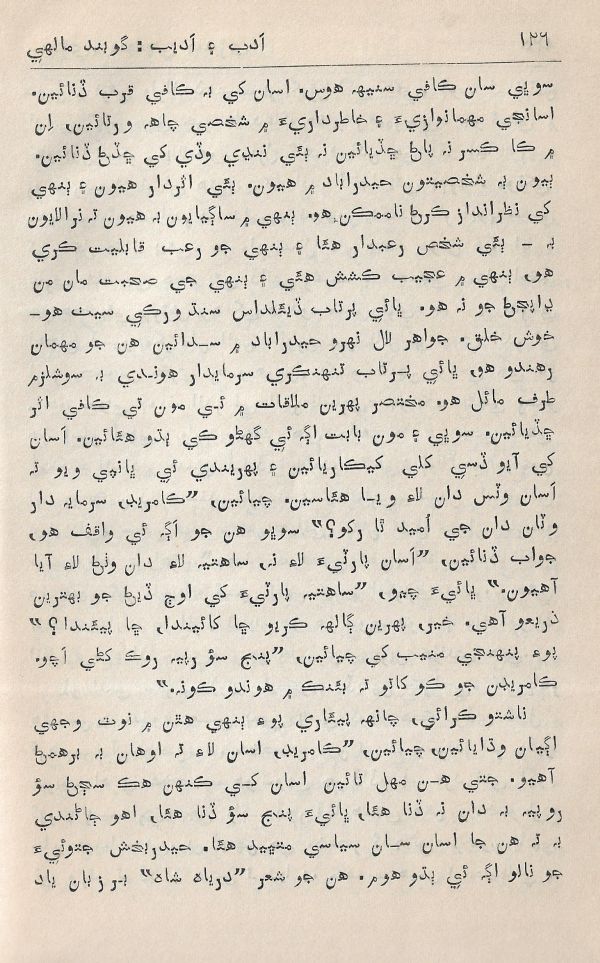 ۱۲۶ اَدب ۽ اَديب : گوبند مالهي
سوڀي سان ڪافي سنيهه هوس. اسان کي به ڪافي قرب ڏنائين.
اسانجي مهمانوازيءَ ۽ خاطرداريءَ ۾ شخصي چاهه ورتائين، اِن
۾ ڪا ڪسر نه پاڻ ڇڏيائين نه ٻئي ننڍي وڏي کي ڇڏڻ ڏنائين.
ٻيون به شخصيتون حيدراباد ۾ هيون. ٻئي اثردار هيون ۽ ٻنهي
کي نظرانداز ڪرڻ ناممڪن هو. ٻنهي ۾ ساڳيايون به هيون ته نرالايون
به - ٻئي شخص رعبدار هئا ۽ ٻنهي جو رعب قابليت ڪري
هو، ٻنهي ۾ عجيب ڪشش هئي ۽ ٻنهي جي صحبت مان من
ڍاپڻ جو نه هو. ڀائي پرتاب ڏيئلداس سنڌ ورڪي سيٺ هو-
خوش خلق. جواهر لال نهرو حيدراباد ۾ سدائين هن جو مهمان
رهندو هو، ڀائي پرتاب تنهنڪري سرمايدار هوندي به سوشلزم
طرف مائل هو. مختصر پهرين ملاقات ۾ ئي مون تي ڪافي اثر
ڇڏيائين. سوڀي ۽ مون بابت اڳ ئي گهڻو ڪي ٻڌو هئائين. اَسان
کي آيو ڏسي کلي کيڪاريائين ۽ پهريندي ئي ڀانپي ويو ته
اَسان وٽس دان لاءِ ويا هئاسين. چيائين، ”ڪامريڊ، سرمايه دار
وٽان دان جي اُميد ٿا رکو؟“ سوڀو هن جو اَڳ ئي واقف هو،
جواب ڏنائين، ”اَسان پارٽيءَ لاءِ نه، ساهتيه لاءِ دان وٺڻ لاءِ آيا
آهيون.“ ڀائيءَ چيو، ”ساهتيه پارٽيءَ کي اوچ ڏيڻ جو بهترين
ذريعو آهي. خير، پهرين ڳالهه ڪريو ڇا کائيندا، ڇا پيئندا؟“
پوءِ پنهنجي منيب کي چيائين، ”پنج سؤ رپيه روڪ کڻي اَچو.
ڪامريڊن جو ڪو کاتو ته بئنڪ ۾ هوندو ڪونه.“
ناشتو ڪرائي، چانهه پيئاري پوءِ ٻنهي هٿن ۾ نوٽ وجهي
اڳيان وڌايائين، چيائين، ”ڪامريڊ، اسان لاءِ ته اوهان به برهمڻ
آهيو. جتي هن مهل تائين اسان کي ڪنهن هڪ سڄڻ سؤ
روپيه به دان نه ڏنا هئا، ڀائيءَ پنج سؤ ڏنا هئا، اهو ڄاڻندي
به ته هن جا اسان سان سياسي متڀيد هئا. حيدربخش جتوئيءَ
جو نالو اڳ ئي ٻڌو هوم. هن جو شعر ”درياه شاه“ بر زبان ياد